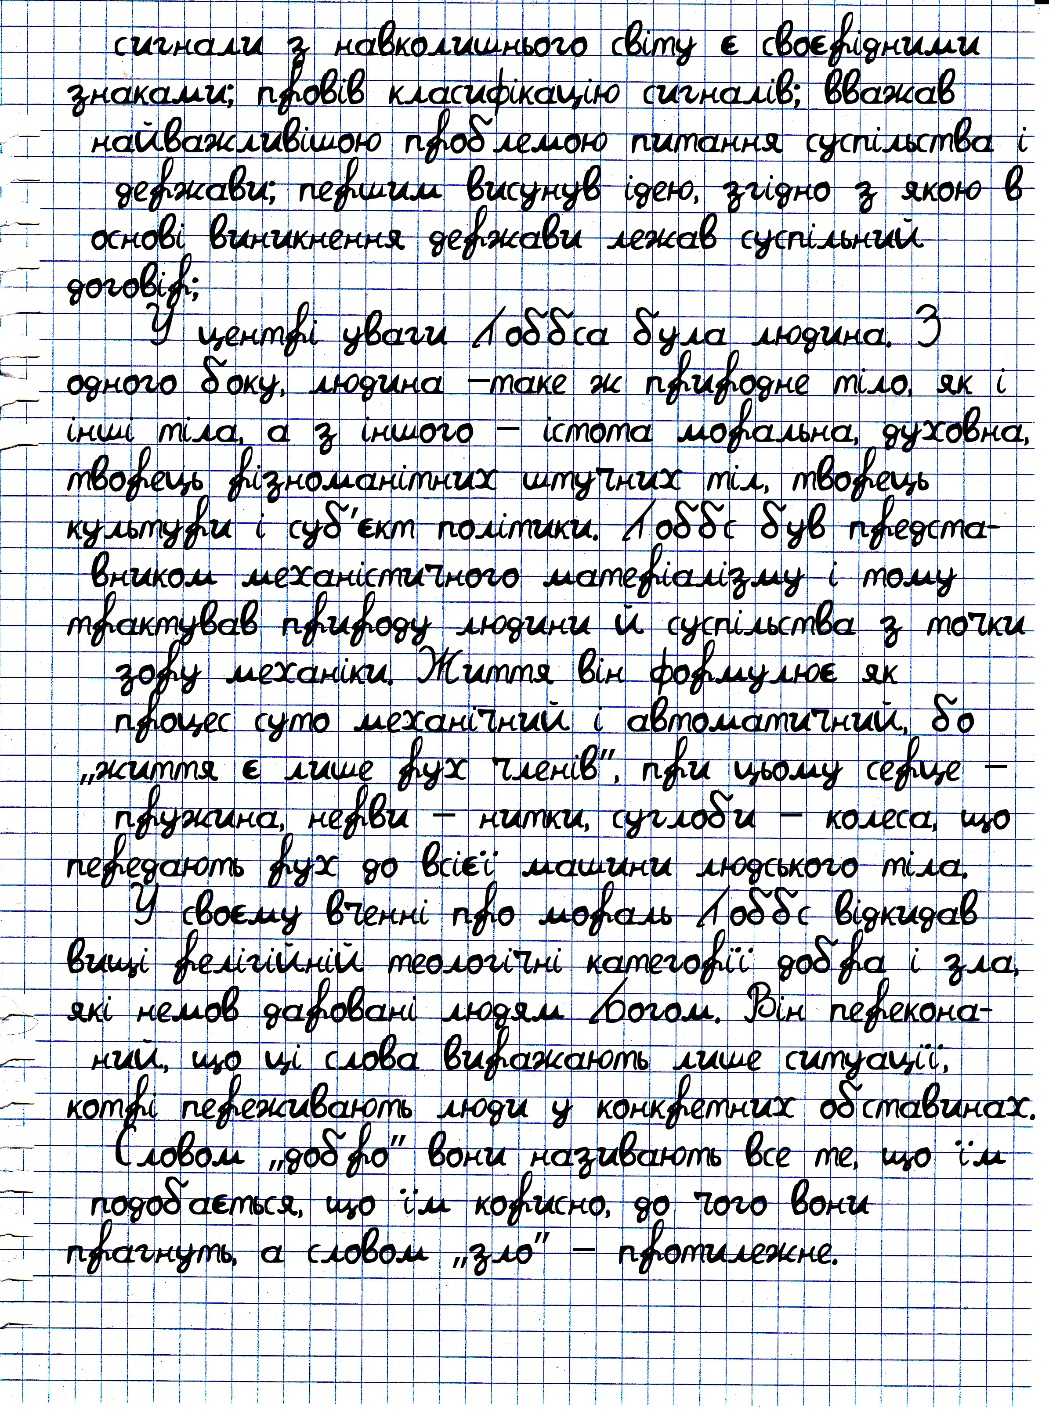 сигнали з навколишнього світу є своєрідними
знаками; провів класифікацію сигналів; вважав
найважливішою проблемою питання суспільства і
держави; першим висунув ідею, згідно з якою в
основі виникнення держави лежав суспільний
договір;
У центрі уваги Гоббса була людина. З
одного боку, людина –таке ж природне тіло, як і
інші тіла, а з іншого – істота моральна, духовна,
творець різноманітних штучних тіл, творець
культури і суб'єкт політики. Гоббс був предста-
вником механістичного матеріалізму і тому
трактував природу людини й суспільства з точки
зору механіки. Життя він формулює як
процес суто механічний і автоматичний, бо
„життя є лише рух членів”, при цьому серце –
пружина, нерви – нитки, суглоби – колеса, що
передають рух до всієї машини людського тіла.
У своєму вченні про мораль Гоббс відкидав
вищі релігійній теологічні категорії добра і зла,
які немов даровані людям Богом. Він перекона-
ний, що ці слова виражають лише ситуації,
котрі переживають люди у конкретних обставинах.
Словом „добро” вони називають все те, що їм
подобається, що їм корисно, до чого вони
прагнуть, а словом „зло” – протилежне.